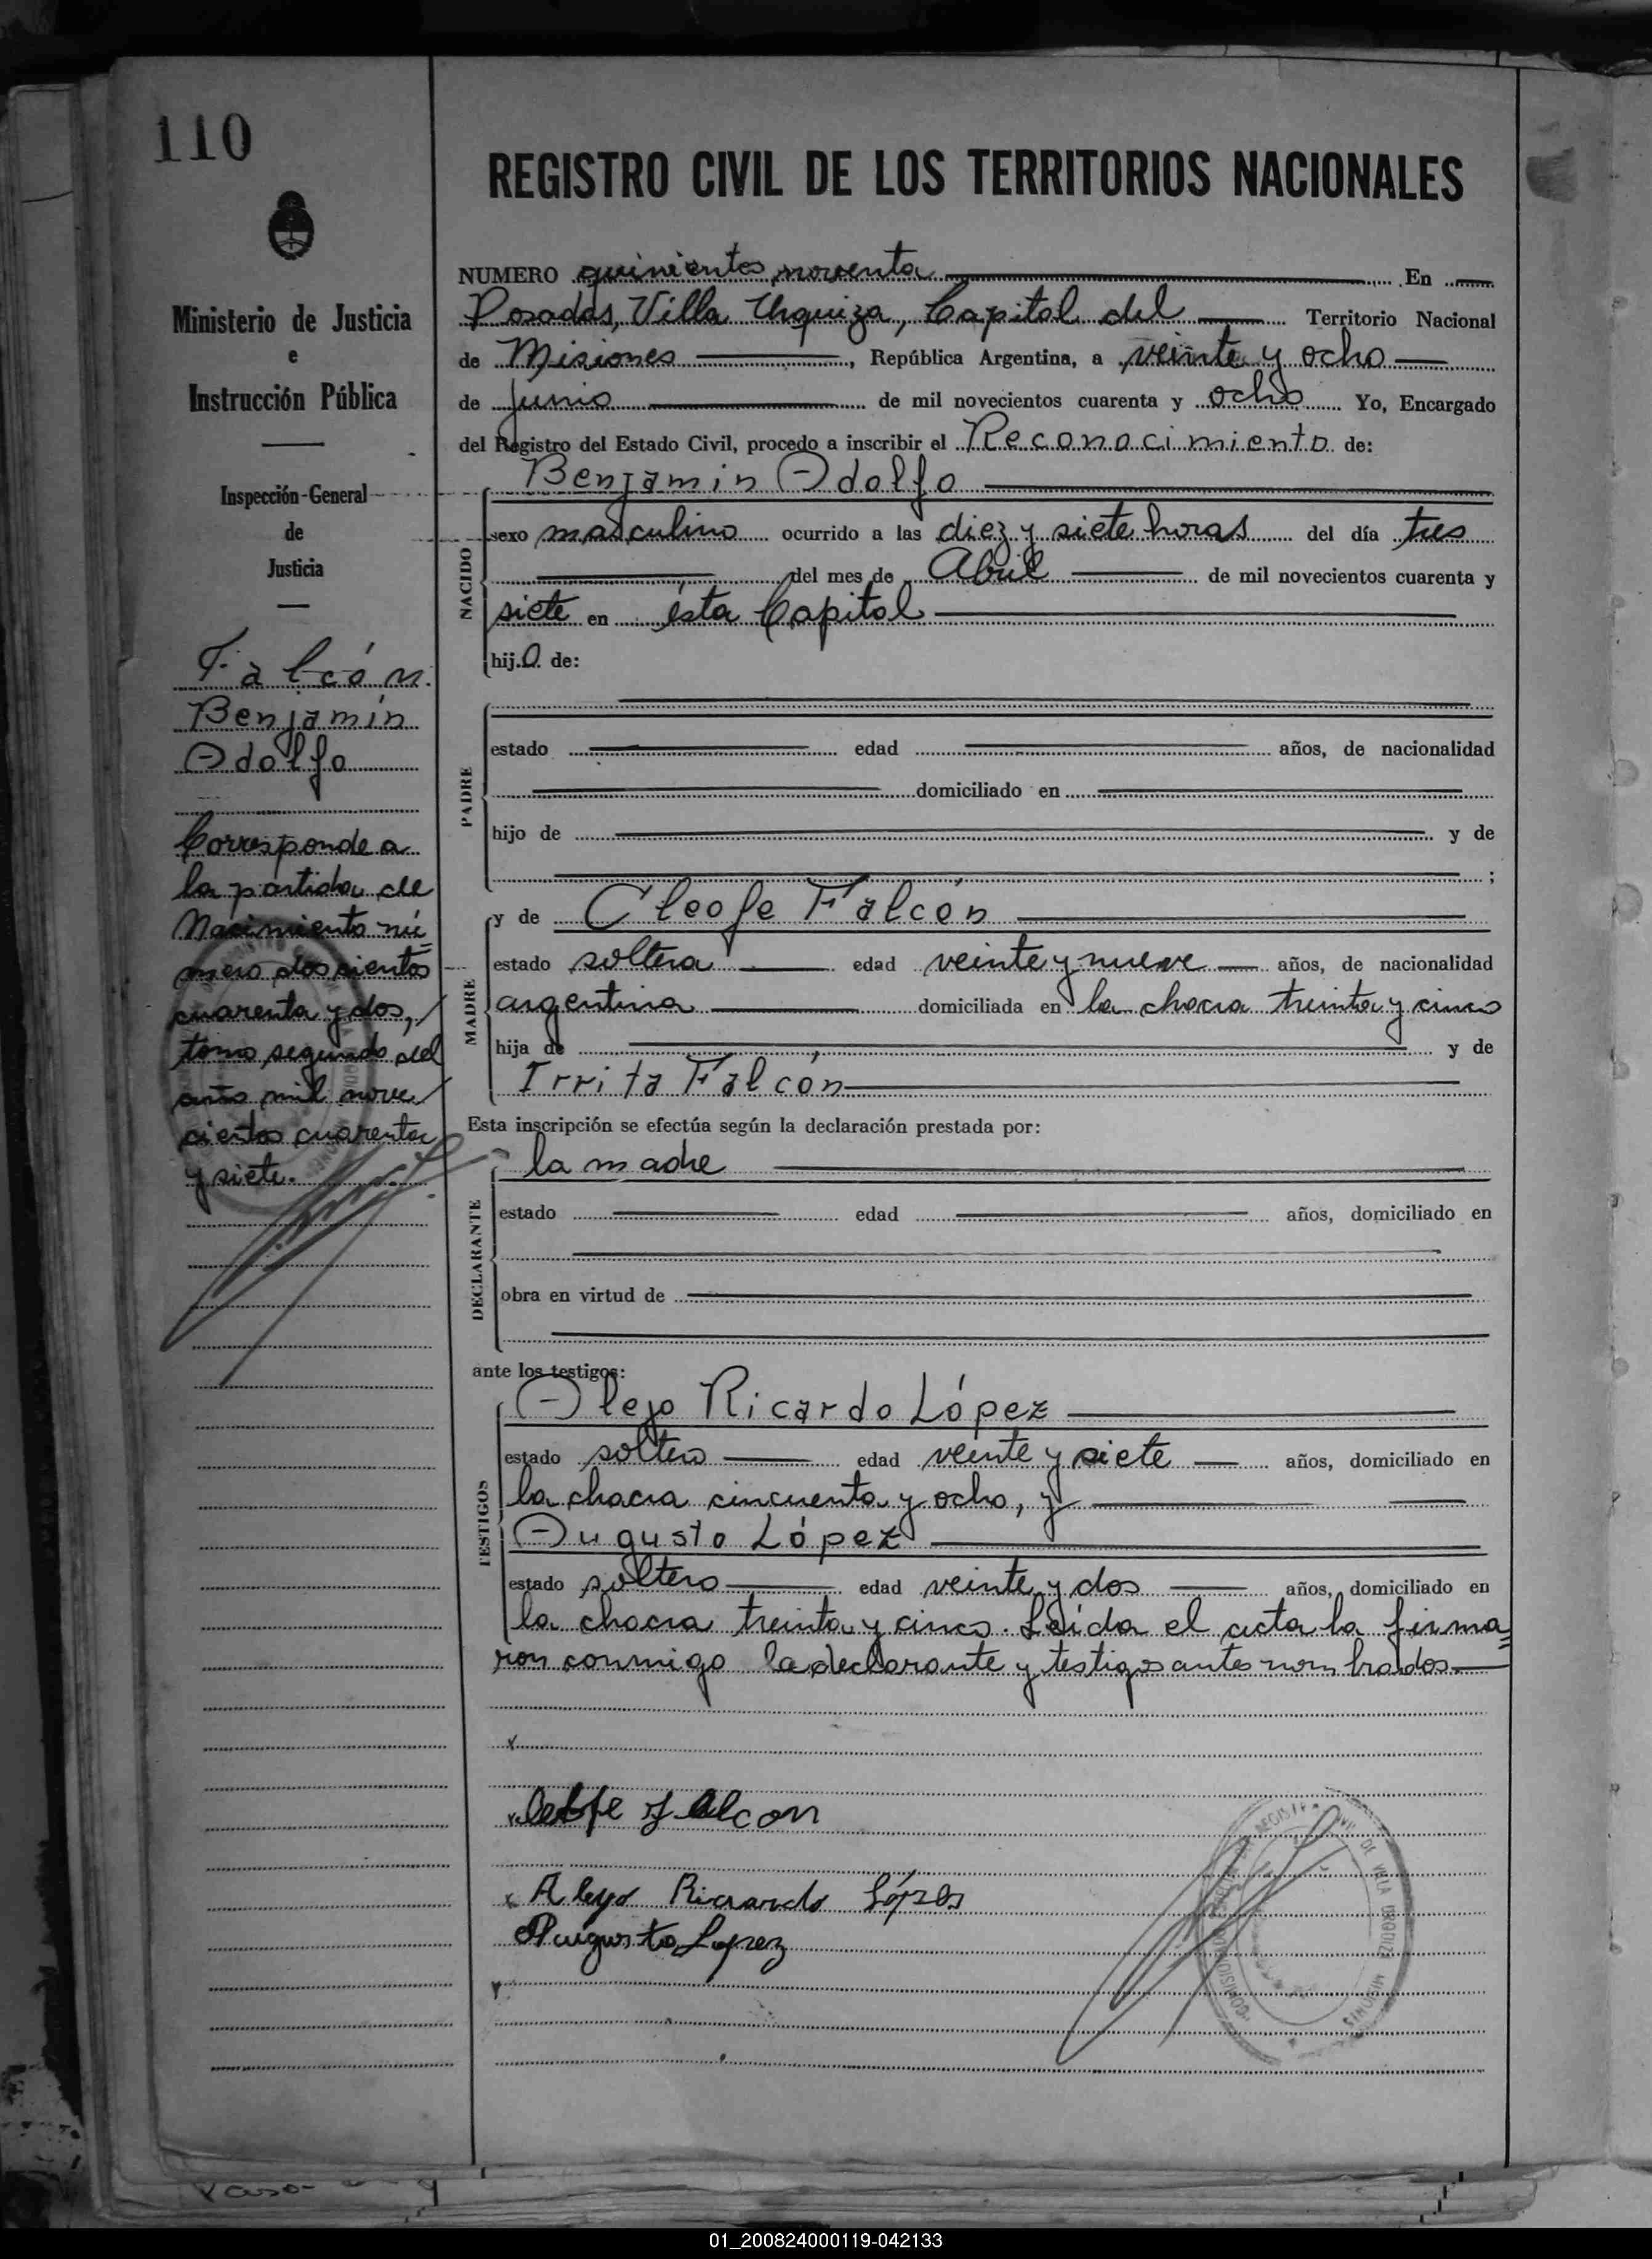 110
Ministerio de Justicia
e
Instrucción Pública
Inspección-General
de
Justicia
Falcón
Benjamín
Adolfo
Corresponde a
la partida de
Nacimiento nú=
mero doscientos
cuarenta y dos,
tomo segundo del
año mil nove
cientos cuarenta
y siete.
REGISTRO CIVIL DE LOS TERRITORIOS NACIONALES
NUMERO quinientos noventa En
Posadas, Villa Urquiza, Capital del Territorio Nacional
de Misiones, República Argentina, a veinte y ocho
de junio de mil novecientos cuarenta y ocho Yo, Encargado
del Registro del Estado Civil, procedo a inscribir el Reconocimiento de:
Benjamin Adolfo
NACIDO
sexo masculino ocurrido a las diez y siete horas del día tres
del mes de Abril de mil novecientos cuarenta y
siete en ésta Capital
hijo de:
PADRE
estado edad años, de nacionalidad
domiciliado en
hijo de y de
;
MADRE
y de Cleofe Falcón
estado soltera edad veinte y nueve años, de nacionalidad
argentina domiciliada en la chacra treinta y cinco
hija de y de
Irrita Falcón
Esta inscripción se efectúa según la declaración prestada por:
DECLARANTE
la madre
estado edad años, domiciliado en
obra en virtud de
ante los testigos:
TESTIGOS
Alejo Ricardo López
estado soltero edad veinte y siete años, domiciliado en
la chacra cincuenta y ocho, y
Augusto López
estado soltero edad veinte y dos años, domiciliado en
la chacra treinta y cinco. Leída el acta la firma=
ron conmigo la declarante y testigos antes nombrados.
Falcon
Aleyo Ricardo López
Augusto Lopez
VILLA URQUIZA MISIONES
01_200824000119-042133